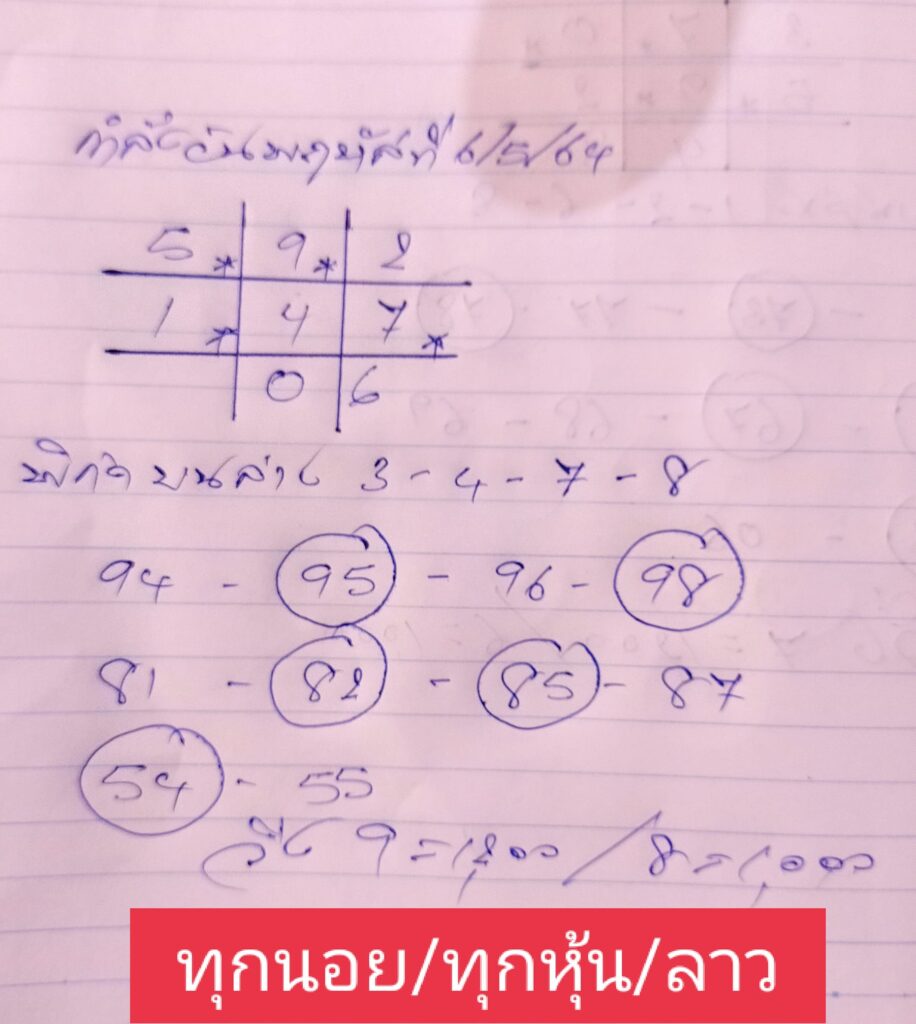 กำลังวันพฤหัสที่ 6/5/64
5 * 9 * 2
1 * 4 7 *
0 6
พิกัด บนล่าง 3 - 4 - 7 - 8
94 - 95 - 96 - 98
81 - 82 - 85 - 87
54 - 55
วิ่ง 9 = / 8 = 1,000
ทุกนอย/ทุกหุ้น/ลาว